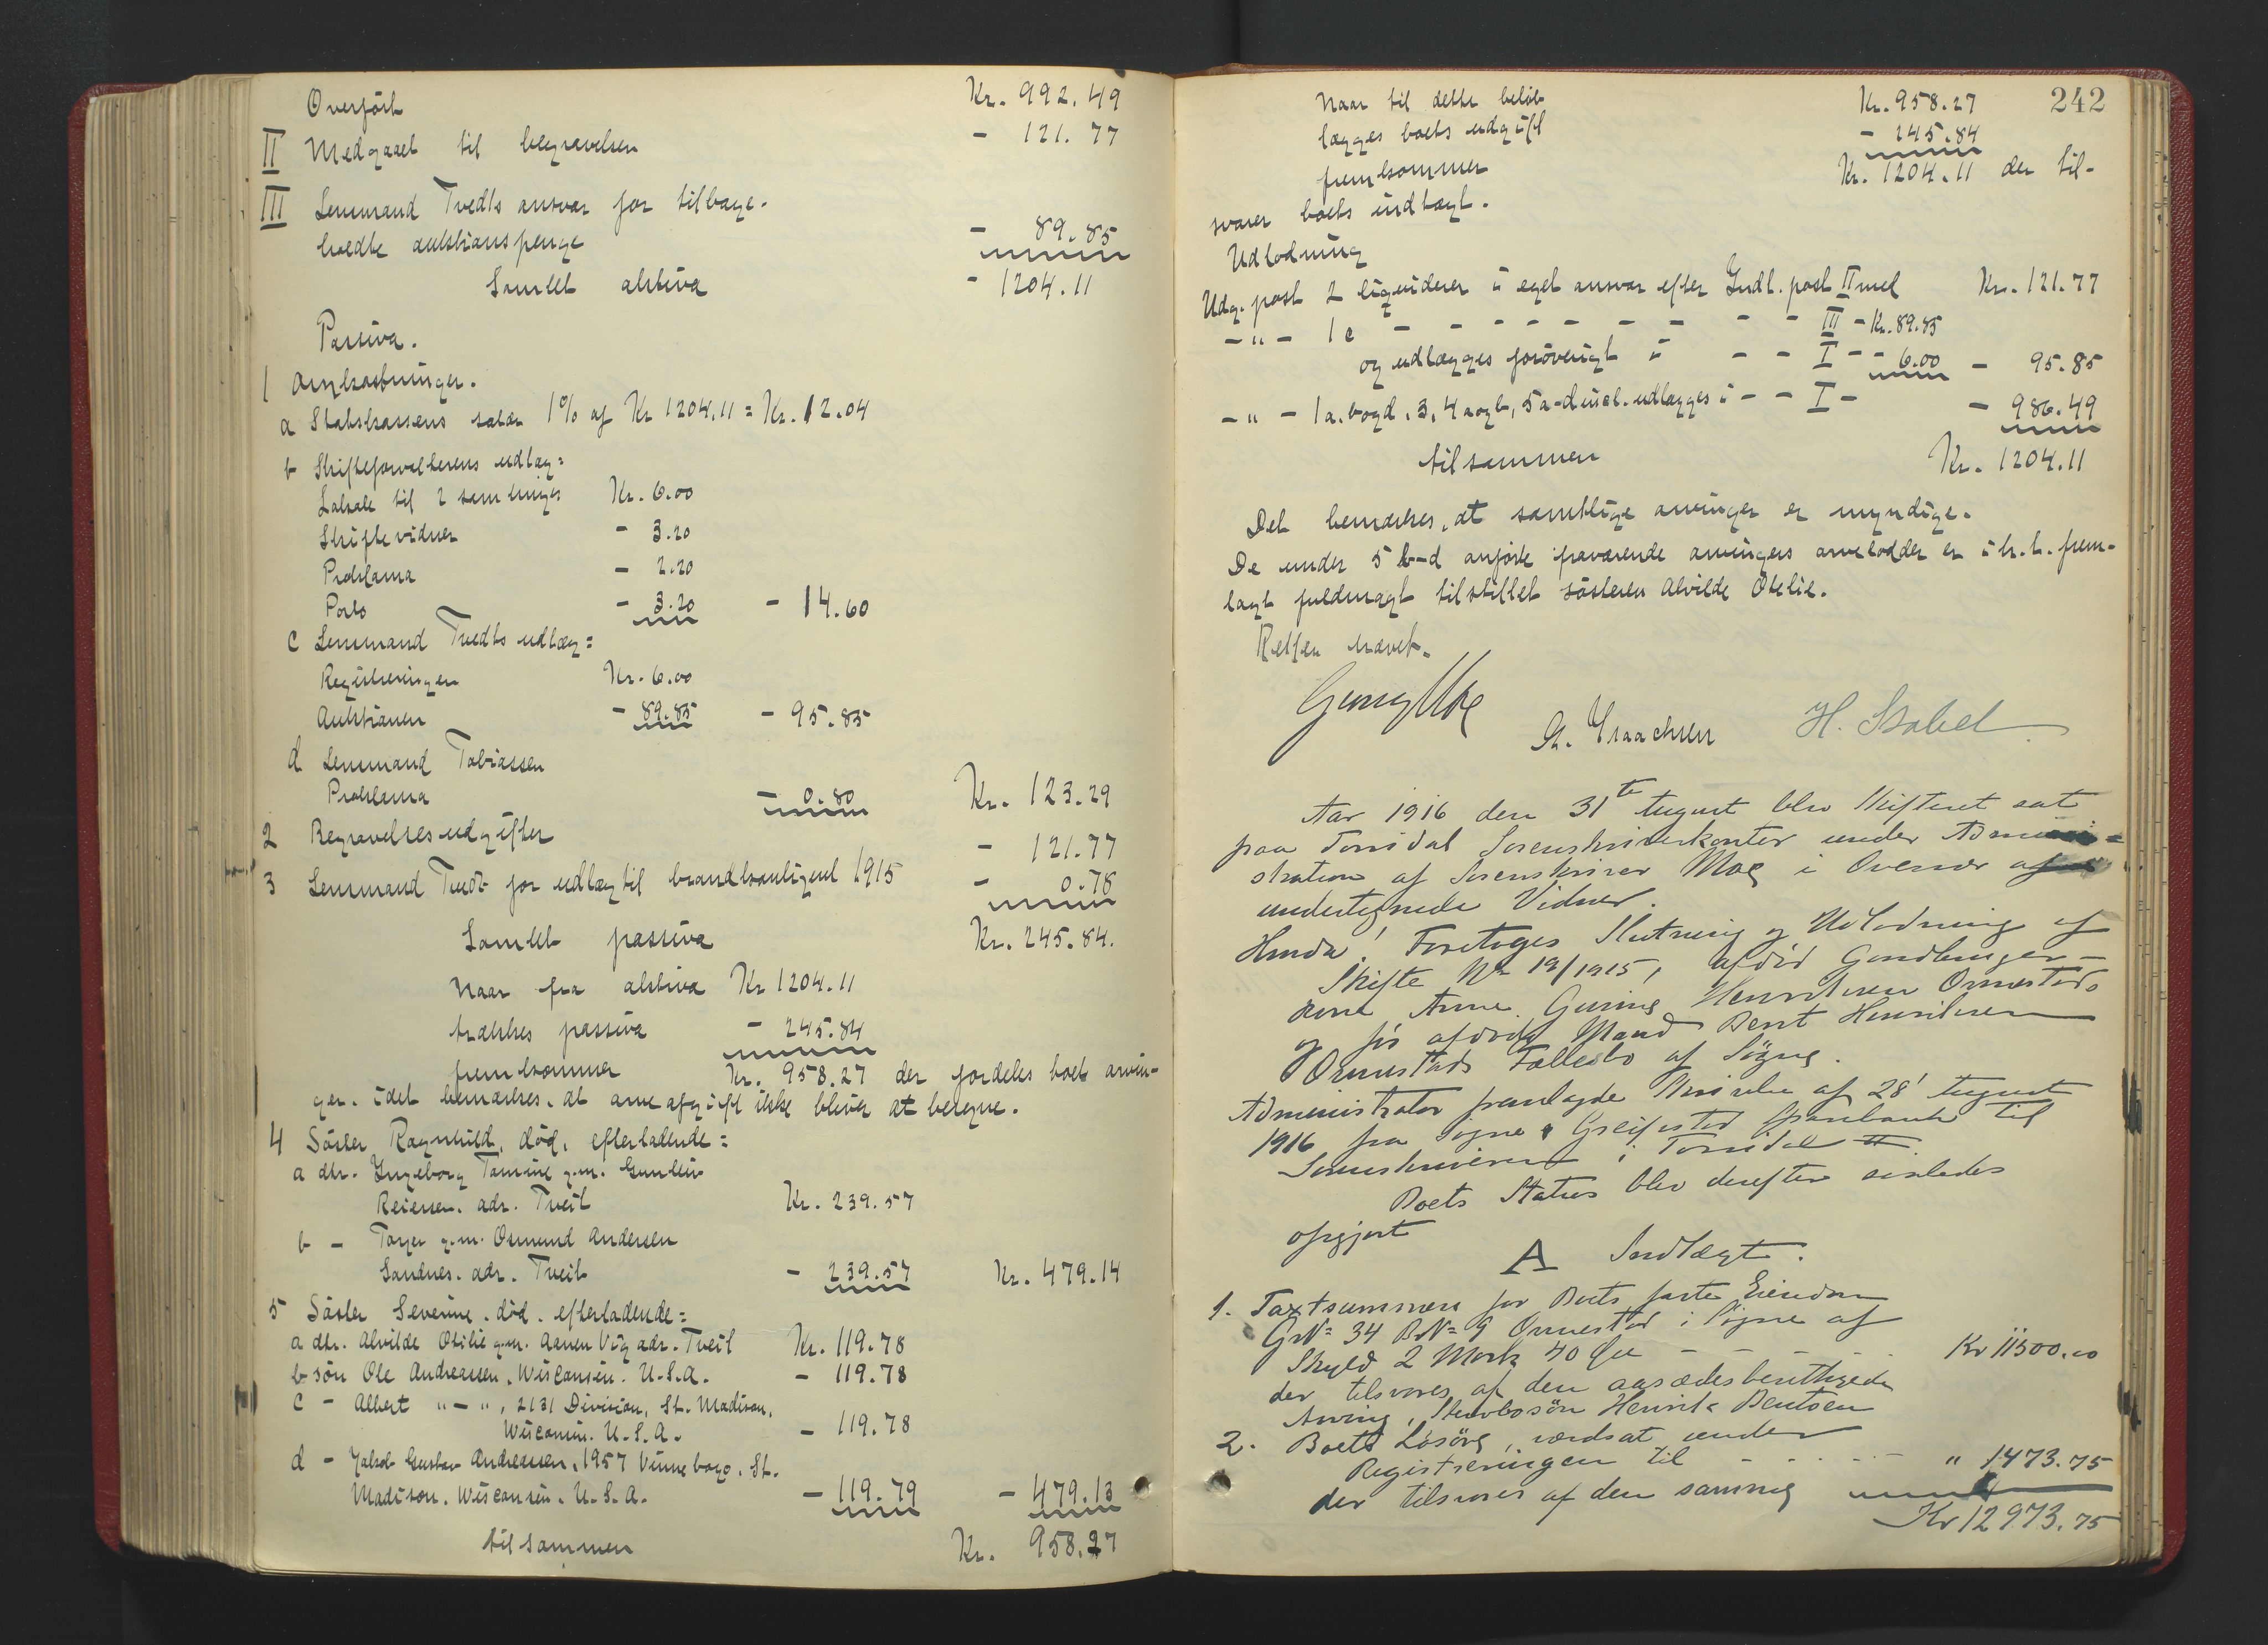 Overført Kr. 992.49
II Medgaaet til begravelsen - 121.77
III Lensmand Tvedts ansvar for tilbage-
holdte auktionspenge - 89.85
Samlet aktiva - 1204.11
Passiva.
1 Omkostninger.
a Statskassens salær 1% af Kr 1204.11 = Kr. 12.04
b Skifteforvalterens udlæg:
Lokale til 2 samlinger Kr. 6.00
Skiftevidner - 3.20
Proklama - 2.20
Porto - 3.20 - 14.60
c Lensmand Tvedts udlæg:
Registreringen Kr. 6.00
Auktionen - 89.85 - 95.85
d Lensmand Tobiassen
Proklama - 0.80 Kr. 123.29
2 Begravelsesudgifter - 121.77
3 Lensmand Tvedt for udlæg til brandkontigent 1915 - 0.78
Samlet passiva Kr. 245.84.
Naar fra aktiva Kr 1204.11
trækkes passiva - 245.84
fremkommer Kr. 958.27 der fordeles boets arvin-
ger. idet bemærkes, at arveafgift ikke bliver at beregne.
4 Søster Ragnhild, død, efterladende:
a dtr. Ingeborg Tomine g.m. Gunleiv
Reiersen. adr. Tveit Kr. 239.57
b - Torjer g.m. Osmund Andersen
Sandnes. adr. Tveit - 239.57 Kr. 479.14
5 Søster Severine. død. efterladende:
a dtr. Alvilde Otilie g.m. Aanen Vig adr. Tveit Kr. 119.78
b søn Ole Andreassen, Wisconsin. U.S.A. - 119.78
c - Albert "-", 2131 Division, St. Madison,
Wisconsin. U.S.A. - 119.78
d - Jakob Gustav Andreassen, 1957 Vinnebago. St.
Madison. Wisconsin. U.S.A. - 119.79 - 479.13
tilsammen Kr. 958.27
242
Naar til dette beløb Kr. 958.27
lægges boets udgift - 245.84
fremkommer Kr. 1204.11 der til-
svarer boets indtægt.
Udlodning
Udg. post 2 liquiderer i eget ansvar efter Indt. post II med Kr. 121.77
- " - 1c - - - - - - - - - III - Kr. 89.85
og udlægges forøvrigt i - - I - - 6.00 - 95.85
- " - 1a. bogd, 3, 4 aogb, 5 a-d incl. udlægges i - - I - - 986.49
tilsammen Kr. 1204.11
Det bemærkes, at samtlige arvinger er myndige.
De under 5 b-d anførte fraværende arvingers arvelodder er i h.t. frem-
lagt fuldmagt tilstillet søsteren Alvilde Otelie.
Retten hævet.
Georg Moe
St. Isaachsen H. Stabel
Aar 1916 den 31te August blev Skifteret sat
paa Torridal Sorenskriverkontor under Admini-
stration af Sorenskriver Moe i Overvær af
undertegnede Vidner.
Hvorda! Foretoges Slutning og Udlodning af
Skifte No 19/1915, afdød Gaardbruger-
kone Anne Gurine Henriksen Ormestads
og før afdøde Mand Bent Henriksen
Ormestads Fællesbo af Søgne.
Administrator fremlagde Skrivelse af 28' August
1916 fra Søgne & Greipstad Sparebank til
Sorenskriveren i Torridal
Boets Status blev derefter saaledes
opgjort
A Indtægt.
1. Taxtsummen for Boets faste Eiendom
G.No 34 B.No 9 Ormestad i Søgne af
Skyld 2 Mark 40 Øre - - - - Kr 11500.00
der tilsvares af den aasædesberettigede
Arving, Stervbosøn Henrik Bentsen
2. Boets Løsøre, værdsat under
Registreringen til - - - - " 1473.75
der tilsvares af den samme
Kr 12973.75